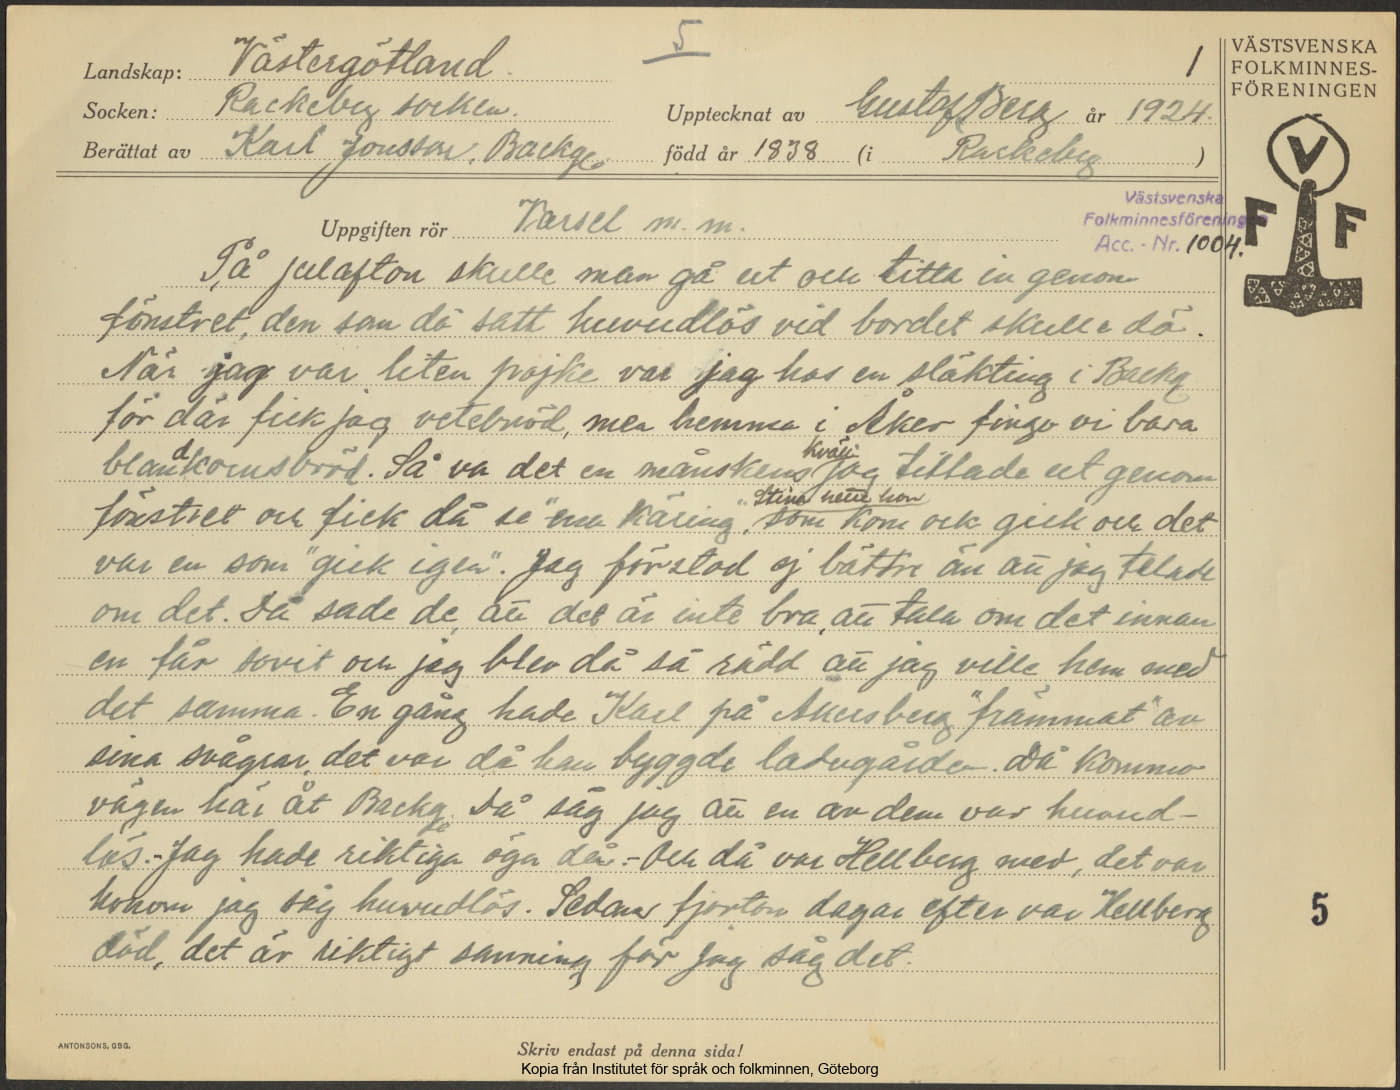 5
1
VÄSTSVENSKA
FOLKMINNES-
FÖRENINGEN
Landskap: Västergötland.
Socken: Rackeby socken.
Upptecknat av Gustaf Berg år 1924.
Berättat av Karl Jonsson, Backg.
född år 1838 (i Rackeby)
V
F F
Västsvenska
Folkminnesföreningen
Acc. - Nr. 1004.
Uppgiften rör Varsel m. m.
På julafton skulle man gå ut och titta in genom
fönstret, den som då satt huvudlös vid bordet skulle dö.
När jag var liten pojke var jag hos en släkting i Backg
för där fick jag vetebröd, men hemma i Åker fingo vi bara
blandkornsbröd. Så va det en månskens kväll jag tittade ut genom
fönstret och fick då se "ena käring", Stina hette hon som kom ock gick och det
var en som "gick igen". Jag förstod ej bättre än att jag talade
om det. Då sade de, att det är inte bra, att tala om det innan
en får sovit och jag blev då så rädd att jag ville hem med
det samma. En gång hade Karl på Åkersberg "främmat" av
sina svågrar, det var då han byggde ladugården. Då kommo de
vägen här åt Backg. Då såg jag att en av dem var huvud-
lös. - Jag hade riktiga öga då. - Och då var Hellberg med, det var
honom jag såg huvudlös. Sedan fjorton dagar efter var Hellberg
död, det är riktigt sanning för jag såg det.
5
ANTONSONS, GBG.
Skriv endast på denna sida!
Kopia från Institutet för språk och folkminnen, Göteborg